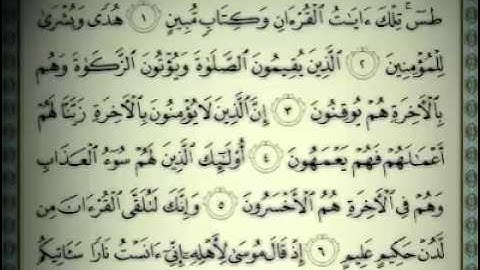 طسٓ ۚ تِلْكَ ءَايَٰتُ ٱلْقُرْءَانِ وَكِتَابٍ مُّبِينٍ ١ هُدًى وَبُشْرَىٰ
لِلْمُؤْمِنِينَ ٢ ٱلَّذِينَ يُقِيمُونَ ٱلصَّلَوٰةَ وَيُؤْتُونَ ٱلزَّكَوٰةَ وَهُم
بِٱلْأَخِرَةِ هُمْ يُوقِنُونَ ٣ إِنَّ ٱلَّذِينَ لَا يُؤْمِنُونَ بِٱلْأَخِرَةِ زَيَّنَّا لَهُمْ
أَعْمَٰلَهُمْ فَهُمْ يَعْمَهُونَ ٤ أُو۟لَٰٓئِكَ ٱلَّذِينَ لَهُمْ سُوٓءُ ٱلْعَذَابِ
وَهُمْ فِى ٱلْأَخِرَةِ هُمُ ٱلْأَخْسَرُونَ ٥ وَإِنَّكَ لَتُلَقَّى ٱلْقُرْءَانَ مِن
لَّدُنْ حَكِيمٍ عَلِيمٍ ٦ إِذْ قَالَ مُوسَىٰ لِأَهْلِهِۦٓ إِنِّىٓ ءَانَسْتُ نَارًا سَـَٔاتِيكُم